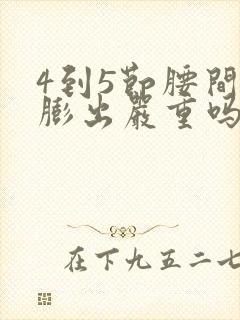 4到5節腰間
膨出嚴重嗎
在下九五二七